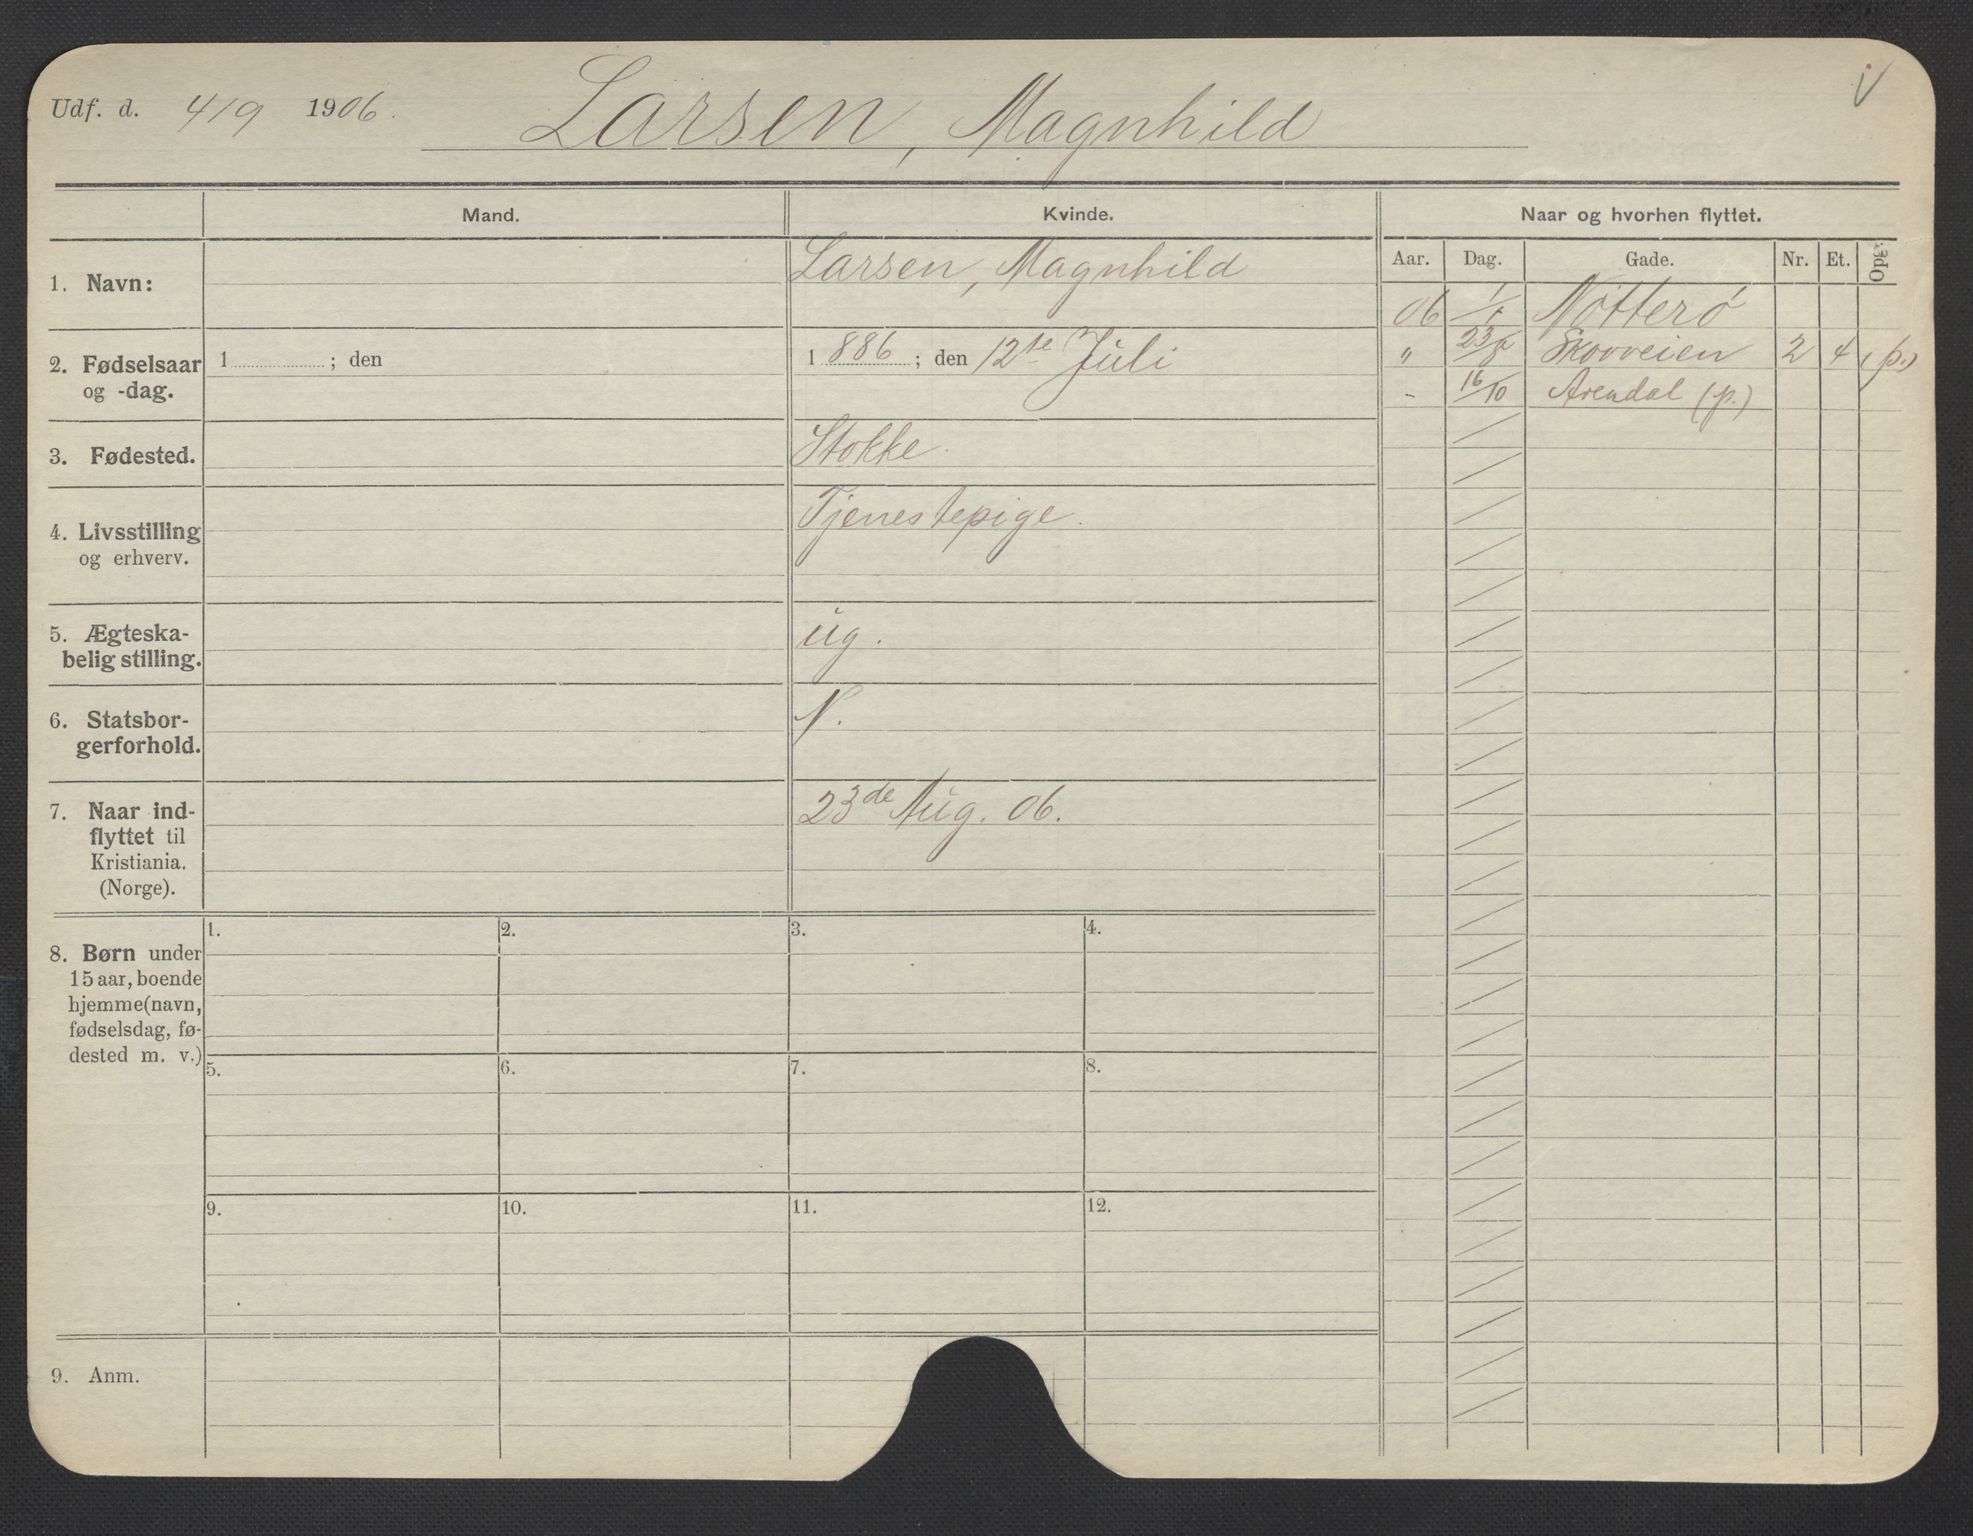 Udf. d. 4/9 1906.
Larsen, Magnhild
Mand.
Kvinde.
Naar og hvorhen flyttet.
Aar. Dag. Gade. Nr. Et. Opg.
1. Navn:
Larsen, Magnhild
06 1/1 Nötterö
2. Fødselsaar
og -dag.
1 ; den
1 886 ; den 12te Juli
" 23/8 Skovveien 2 4 (p.)
- 16/10 Arendal (p.)
3. Fødested.
Stokke.
4. Livsstilling
og erhverv.
Tjenestepige.
5. Ægteska-
belig stilling.
ug.
6. Statsbor-
gerforhold.
N.
7. Naar ind-
flyttet til
Kristiania.
(Norge).
23de Aug. 06.
8. Børn under
15 aar, boende
hjemme (navn,
fødselsdag, fø-
dested m. v.)
1. 2. 3. 4.
5. 6. 7. 8.
9. 10. 11. 12.
9. Anm.